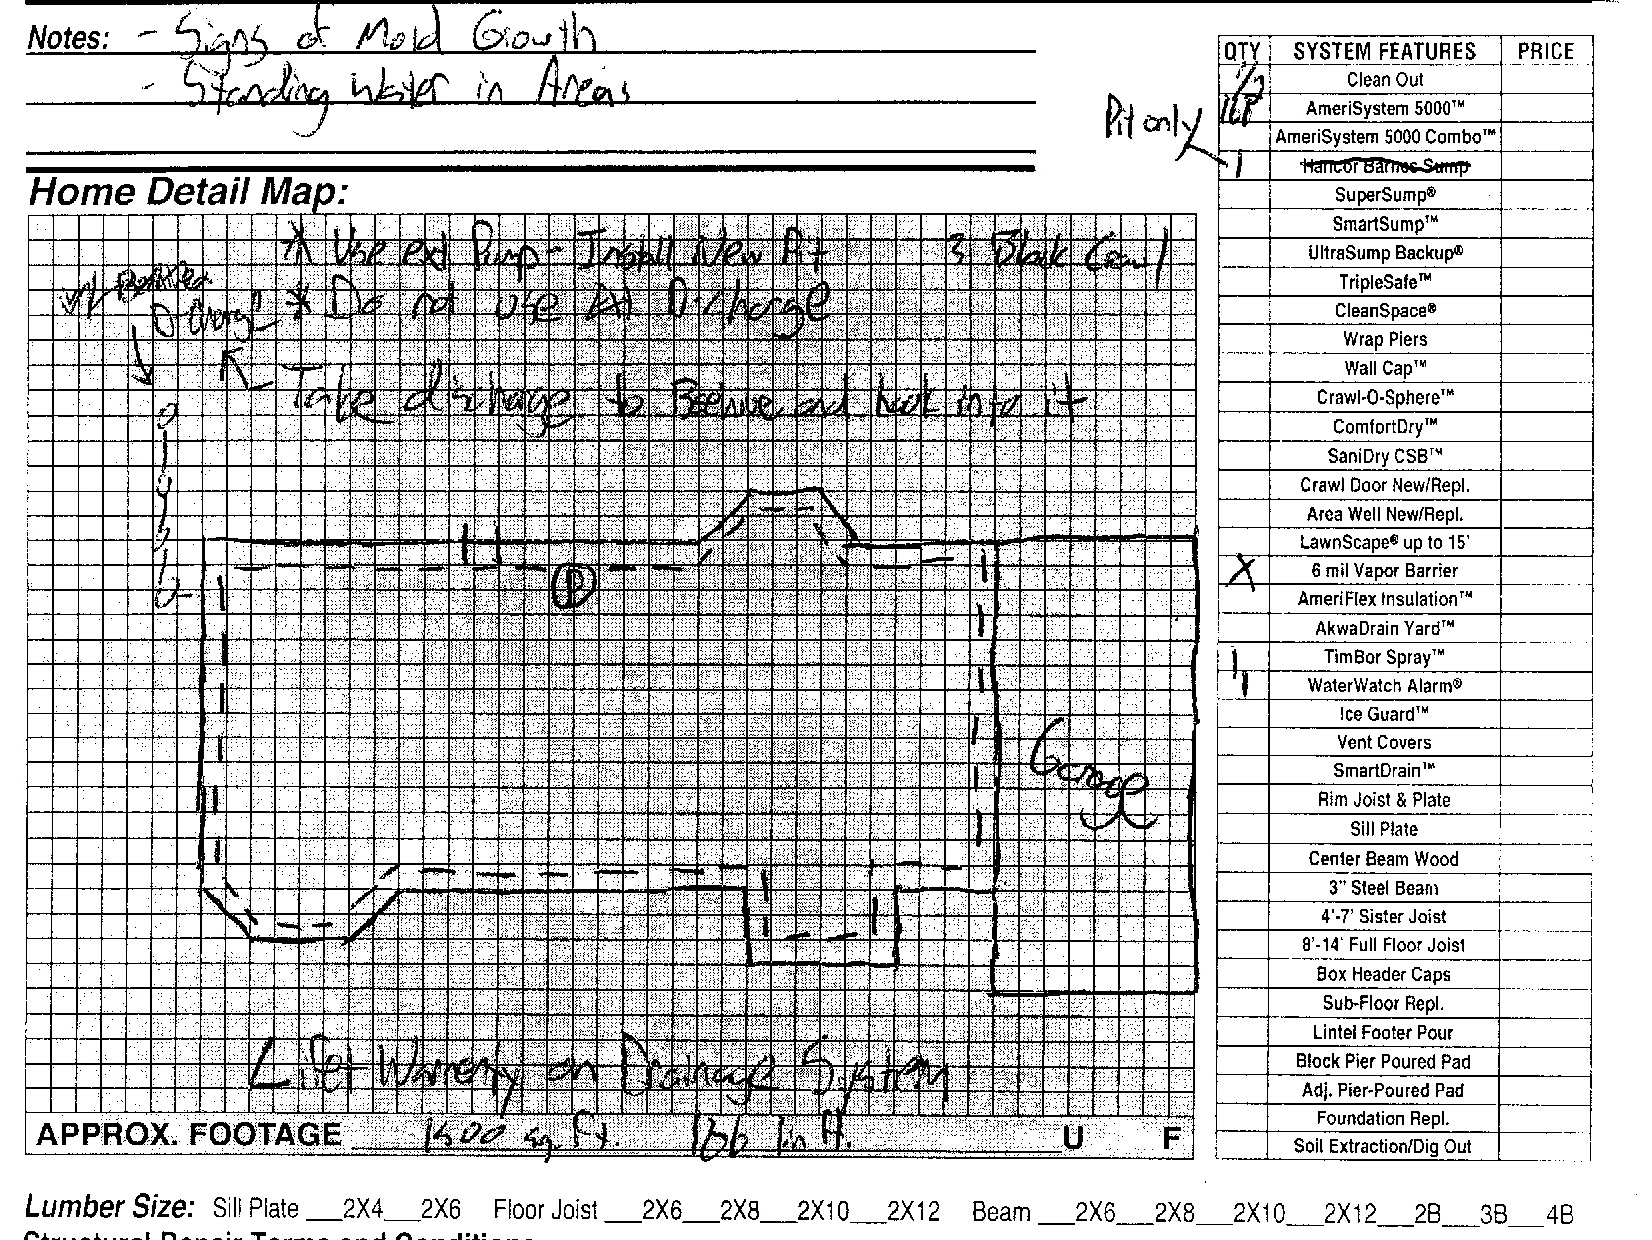 Notes: - Signs of Mold Growth
- Standing Water in Areas
Pit only
Home Detail Map:
* Use ext Pump - Install New Pit
3 Block Crawl
* Do not use Ext D-charge
w/
D-charge
Take discharge to Beehive and hook into it
P
Garage
Lifet Warrenty on Drainage System
APPROX. FOOTAGE 1500 sq. ft. 166 lin ft. U F
QTY SYSTEM FEATURES PRICE
Clean Out
AmeriSystem 5000™
AmeriSystem 5000 Combo™
1 Hancor Barnes Sump
SuperSump®
SmartSump™
UltraSump Backup®
TripleSafe™
CleanSpace®
Wrap Piers
Wall Cap™
Crawl-O-Sphere™
ComfortDry™
SaniDry CSB™
Crawl Door New/Repl.
Area Well New/Repl.
LawnScape® up to 15'
X 6 mil Vapor Barrier
AmeriFlex Insulation™
AkwaDrain Yard™
1 TimBor Spray™
1 WaterWatch Alarm®
Ice Guard™
Vent Covers
SmartDrain™
Rim Joist & Plate
Sill Plate
Center Beam Wood
3" Steel Beam
4'-7' Sister Joist
8'-14' Full Floor Joist
Box Header Caps
Sub-Floor Repl.
Lintel Footer Pour
Block Pier Poured Pad
Adj. Pier-Poured Pad
Foundation Repl.
Soil Extraction/Dig Out
Lumber Size: Sill Plate ___2X4___2X6 Floor Joist ___2X6___2X8___2X10___2X12 Beam ___2X6___2X8___2X10___2X12___2B___3B___4B
Structural Repair Terms and Conditions